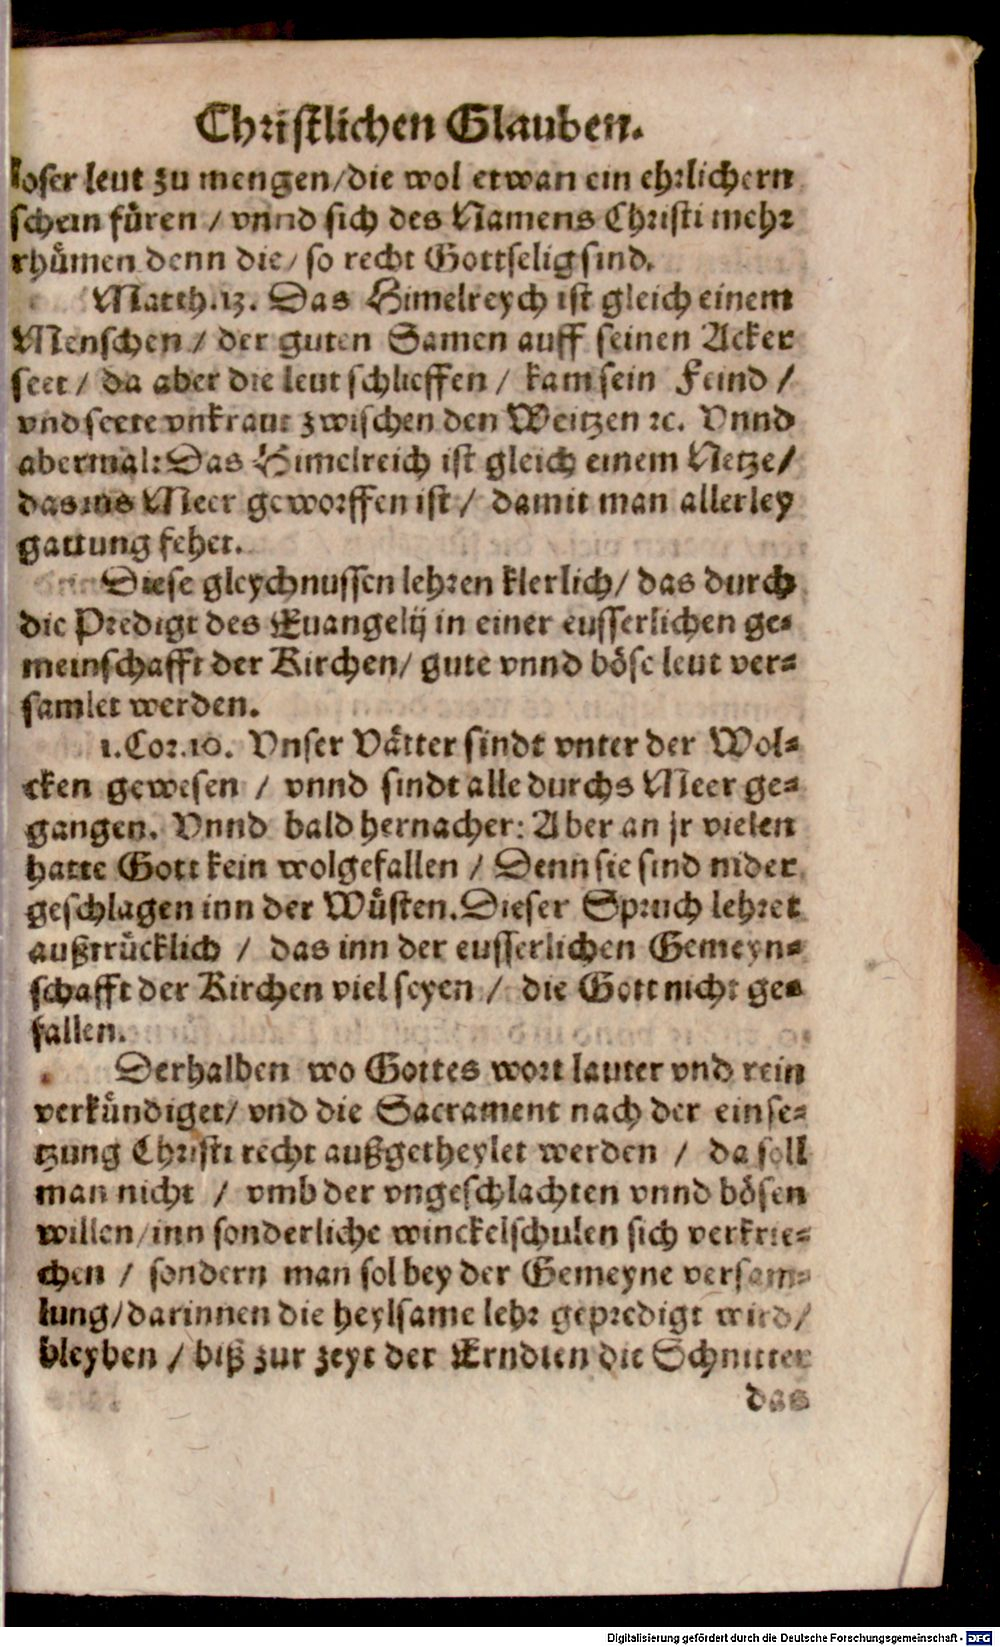 Christlichen Glauben.
loser leut zu mengen/die wol etwan ein ehrlichern
schein füren / vnnd sich des Namens Christi mehr
rhümen denn die/ so recht Gottselig sind.
Matth.13. Das Himelreych ist gleich einem
Menschen / der guten Samen auff seinen Acker
seet / da aber die leut schlieffen / kam sein Feind /
vnd seete vnkraut zwischen den Weitzen ꝛc. Vnnd
abermal: Das Himelreich ist gleich einem Netze/
das ins Meer geworffen ist / damit man allerley
gattung fehet.
Diese gleychnussen lehren klerlich/ das durch
die Predigt des Euangelij in einer eusserlichen ge-
meinschafft der Kirchen/ gute vnnd böse leut ver-
samlet werden.
1.Cor.10. Vnser Vätter sindt vnter der Wol-
cken gewesen / vnnd sindt alle durchs Meer ge-
gangen. Vnnd bald hernacher: Aber an jr vielen
hatte Gott kein wolgefallen / Denn sie sind nider
geschlagen inn der Wüsten. Dieser Spruch lehret
außtrücklich / das inn der eusserlichen Gemeyn-
schafft der Kirchen viel seyen / die Gott nicht ge-
fallen.
Derhalben wo Gottes wort lauter vnd rein
verkündiget/ vnd die Sacrament nach der einse-
tzung Christi recht außgetheylet werden / da soll
man nicht / vmb der vngeschlachten vnnd bösen
willen/inn sonderliche winckelschulen sich verkrie-
chen / sondern man sol bey der Gemeyne versam-
lung/darinnen die heylsame lehr gepredigt wird/
bleyben / biß zur zeyt der Erndten die Schnitter
das
Digitalisierung gefördert durch die Deutsche Forschungsgemeinschaft - DFG